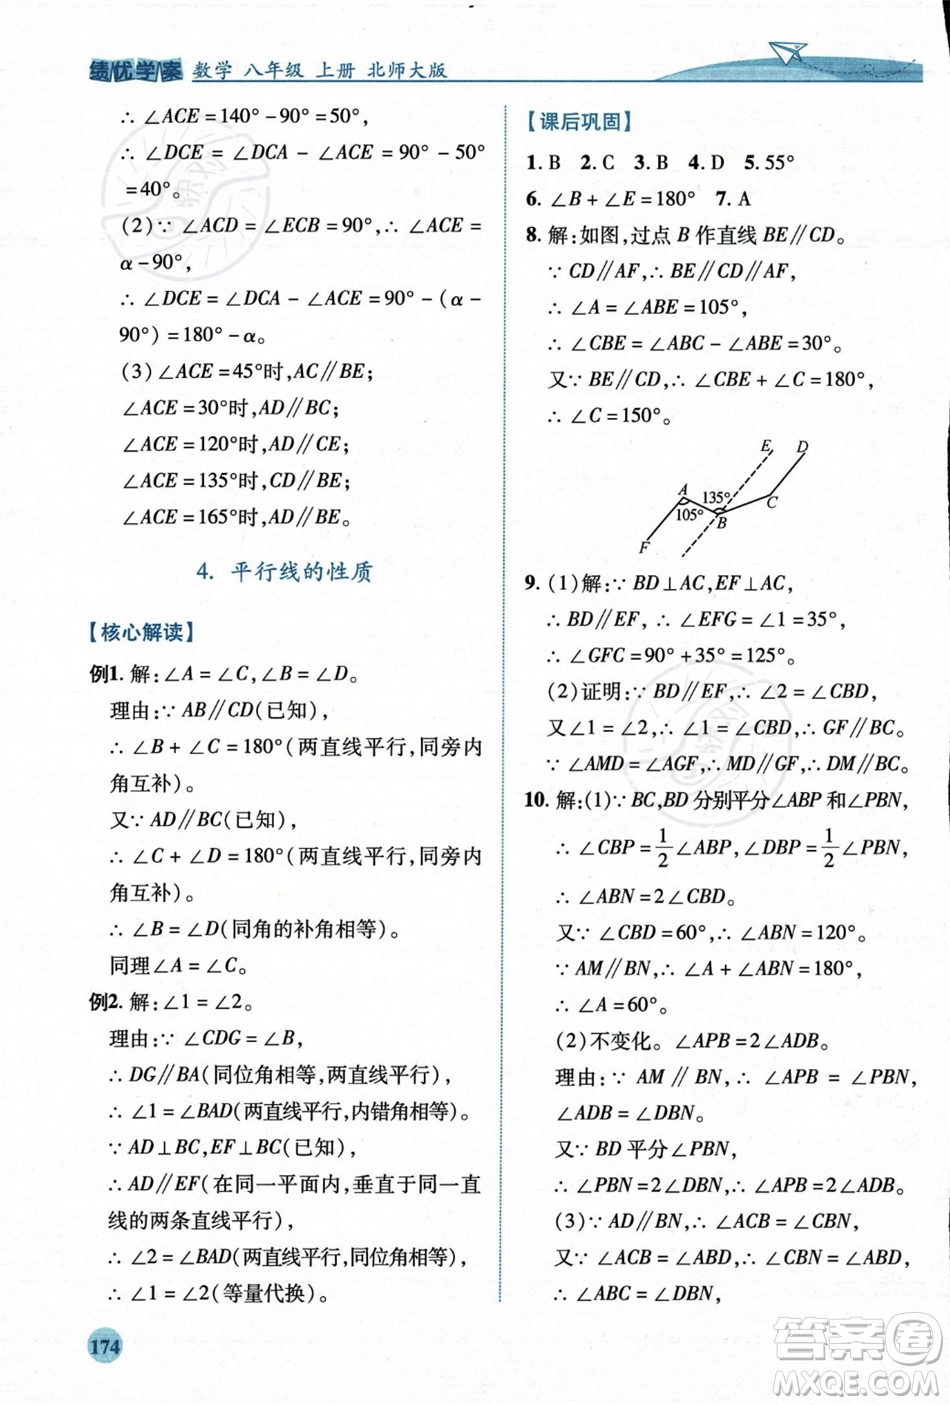 绩优学案 数学 八年级 上册 北师大版
∴ ∠ACE = 140° - 90° = 50°,
∴ ∠DCE = ∠DCA - ∠ACE = 90° - 50°
= 40°。
(2)∵ ∠ACD = ∠ECB = 90°,∴ ∠ACE =
α - 90°,
∴ ∠DCE = ∠DCA - ∠ACE = 90° - (α -
90°) = 180° - α。
(3)∠ACE = 45°时,AC∥BE;
∠ACE = 30°时,AD∥BC;
∠ACE = 120°时,AD∥CE;
∠ACE = 135°时,CD∥BE;
∠ACE = 165°时,AD∥BE。
4. 平行线的性质
【核心解读】
例1. 解:∠A = ∠C,∠B = ∠D。
理由:∵ AB∥CD(已知),
∴ ∠B + ∠C = 180°(两直线平行,同旁内
角互补)。
又∵ AD∥BC(已知),
∴ ∠C + ∠D = 180°(两直线平行,同旁内
角互补)。
∴ ∠B = ∠D(同角的补角相等)。
同理∠A = ∠C。
例2. 解:∠1 = ∠2。
理由:∵ ∠CDG = ∠B,
∴ DG∥BA(同位角相等,两直线平行),
∴ ∠1 = ∠BAD(两直线平行,内错角相等)。
∵ AD⊥BC,EF⊥BC(已知),
∴ AD∥EF(在同一平面内,垂直于同一直
线的两条直线平行),
∴ ∠2 = ∠BAD(两直线平行,同位角相等),
∴ ∠1 = ∠2(等量代换)。
174
【课后巩固】
1. B 2. C 3. B 4. D 5. 55°
6. ∠B + ∠E = 180° 7. A
8. 解:如图,过点 B 作直线 BE∥CD。
∵ CD∥AF,∴ BE∥CD∥AF,
∴ ∠A = ∠ABE = 105°,
∴ ∠CBE = ∠ABC - ∠ABE = 30°。
又∵ BE∥CD,∴ ∠CBE + ∠C = 180°,
∴ ∠C = 150°。
E D
A 135° C
105° B
F
9. (1)解:∵ BD⊥AC,EF⊥AC,
∴ BD∥EF,∴ ∠EFG = ∠1 = 35°,
∴ ∠GFC = 90° + 35° = 125°。
(2)证明:∵ BD∥EF,∴ ∠2 = ∠CBD,
又∠1 = ∠2,∴ ∠1 = ∠CBD,∴ GF∥BC。
∵ ∠AMD = ∠AGF,∴ MD∥GF,∴ DM∥BC。
10. 解:(1)∵ BC,BD 分别平分∠ABP 和∠PBN,
∴ ∠CBP = 1/2 ∠ABP,∠DBP = 1/2 ∠PBN,
∴ ∠ABN = 2∠CBD。
又∵ ∠CBD = 60°,∴ ∠ABN = 120°。
∵ AM∥BN,∴ ∠A + ∠ABN = 180°,
∴ ∠A = 60°。
(2)不变化。∠APB = 2∠ADB。
理由:∵ AM∥BN,∴ ∠APB = ∠PBN,
∠ADB = ∠DBN。
又∵ BD 平分∠PBN,
∴ ∠PBN = 2∠DBN,∴ ∠APB = 2∠ADB。
(3)∵ AD∥BN,∴ ∠ACB = ∠CBN,
又∵ ∠ACB = ∠ABD,∴ ∠CBN = ∠ABD,
∴ ∠ABC = ∠DBN,
答案卷
MXQE.COM